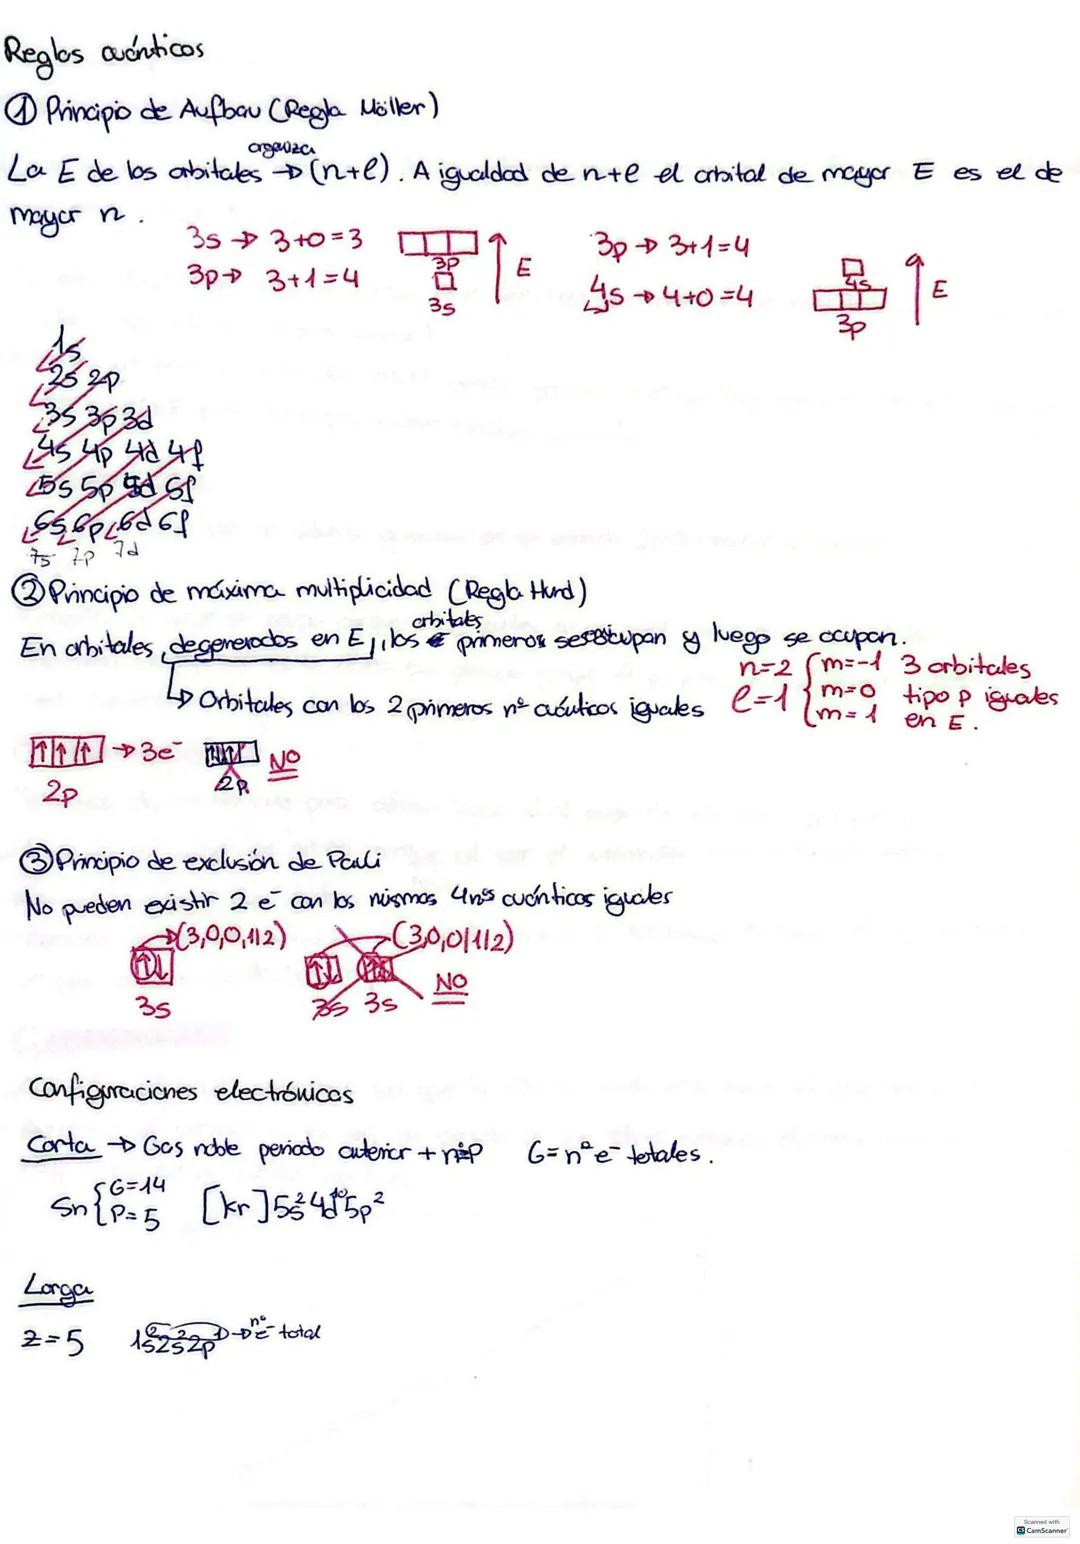 Reglas cuánticas
① Principio de Aufbau (Regla Möller)
organiza
La E de los orbitales → (n+l). A igualdad de n+l el orbital de mayor E es el de
mayor n.
3s → 3+0=3
3p → 3+1=4
3p
3s
E
3p → 3+1=4
4s → 4+0=4
4s
3p
E
1s
2s 2p
3s 3p 3d
4s 4p 4d 4f
5s 5p 5d 5f
6s 6p 6d 6f
7s 7p 7d
② Principio de máxima multiplicidad (Regla Hund)
orbitales
En orbitales degenerados en E, los primeros se ocupan y luego se ocupan.
↳ Orbitales con los 2 primeros nº cuánticos iguales
n=2 l=1 { m=-1 m=0 m=1
3 orbitales tipo p iguales en E.
↑ ↑ ↑ → 3e⁻
2p
2p
NO
③ Principio de exclusión de Pauli
No pueden existir 2 e⁻ con los mismos 4 nºs cuánticos iguales
↑↓ → (3,0,0,1/2)
3s
(3,0,0,1/2)
3s 3s
NO
Configuraciones electrónicas
Corta → Gas noble periodo anterior + nº P G = nº e⁻ totales.
Sn { G=14 P=5 [Kr] 5s² 4d¹⁰ 5p²
Larga
z=5 1s² 2s² 2p¹ → nº e⁻ total
Scanned with
CamScanner